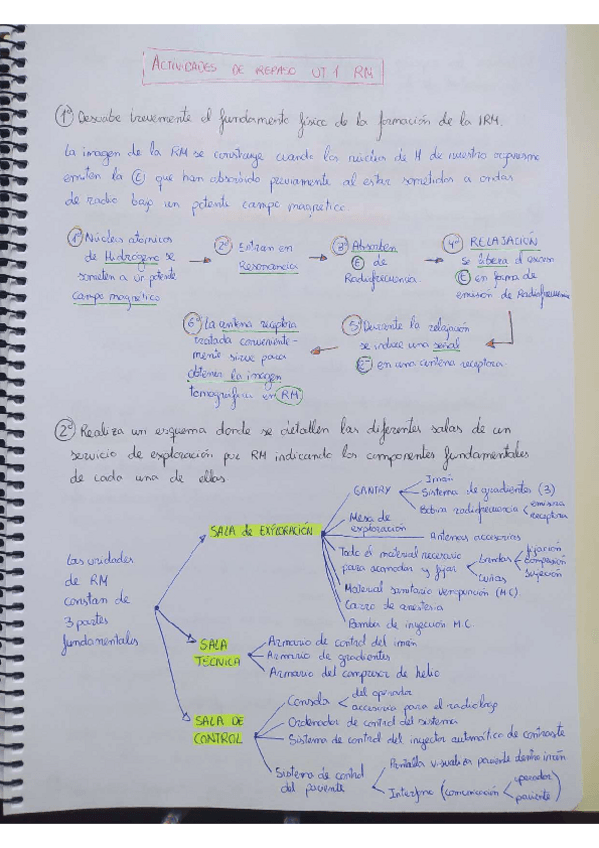 ACTIVIDADES DE REPASO UT 1 RM
1º Describe brevemente el fundamento físico de la formación de la IRM.
La imagen de la RM se construye cuando los núcleos de H de nuestro organismo
emiten la E que han absorbido previamente al estar sometidos a ondas
de radio bajo un potente campo magnético.
1º Núcleos atómicos
de Hidrógeno se
someten a un potente
campo magnético
2º Entran en
Resonancia
3º Absorben
E de
Radiofrecuencia
4º RELAJACIÓN
se libera el exceso
E en forma de
emisión de Radiofrecuencia
5º Durante la relajación
se induce una señal
E- en una antena receptora
6º La antena receptora
tratada conveniente-
mente sirve para
obtener la imagen
tomográfica en RM
2º Realiza un esquema donde se detallen las diferentes salas de un
servicio de exploración por RM indicando los componentes fundamentales
de cada una de ellas
Las unidades
de RM
constan de
3 partes
fundamentales
SALA de EXPLORACIÓN
GANTRY
Imán
Sistema de gradientes (3)
Bobina radiofrecuencia
emisora
receptora
Mesa de
exploración
Antenas accesorias
Todo el material necesario
para acomodar y fijar
bandas
fijación
compresión
sujeción
cuñas
Material sanitario venopunción (M.C)
Carro de anestesia
Bomba de inyección M.C.
SALA
TÉCNICA
Armario de control del imán
Armario de gradientes
Armario del compresor de helio
SALA DE
CONTROL
Consola
del operador
accesoria para el radiólogo
Ordenador de control del sistema
Sistema de control del inyector automático de contraste
Sistema de control
del paciente
Pantalla visualiza paciente dentro imán
Interfono (comunicación
operador
paciente)